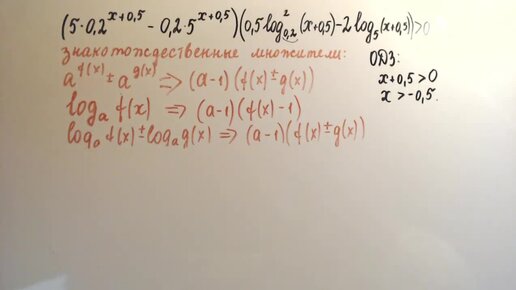 (5·0,2^{x+0,5} - 0,2·5^{x+0,5})(0,5log²_{0,2}(x+0,5) - 2log_5(x+0,5))>0
знакотождественные множители:
a^{f(x)} ± a^{g(x)} => (a-1)(f(x) ± g(x))
log_a f(x) => (a-1)(f(x)-1)
log_a f(x) ± log_a g(x) => (a-1)(f(x) ± g(x))
ОДЗ:
x+0,5>0
x>-0,5.